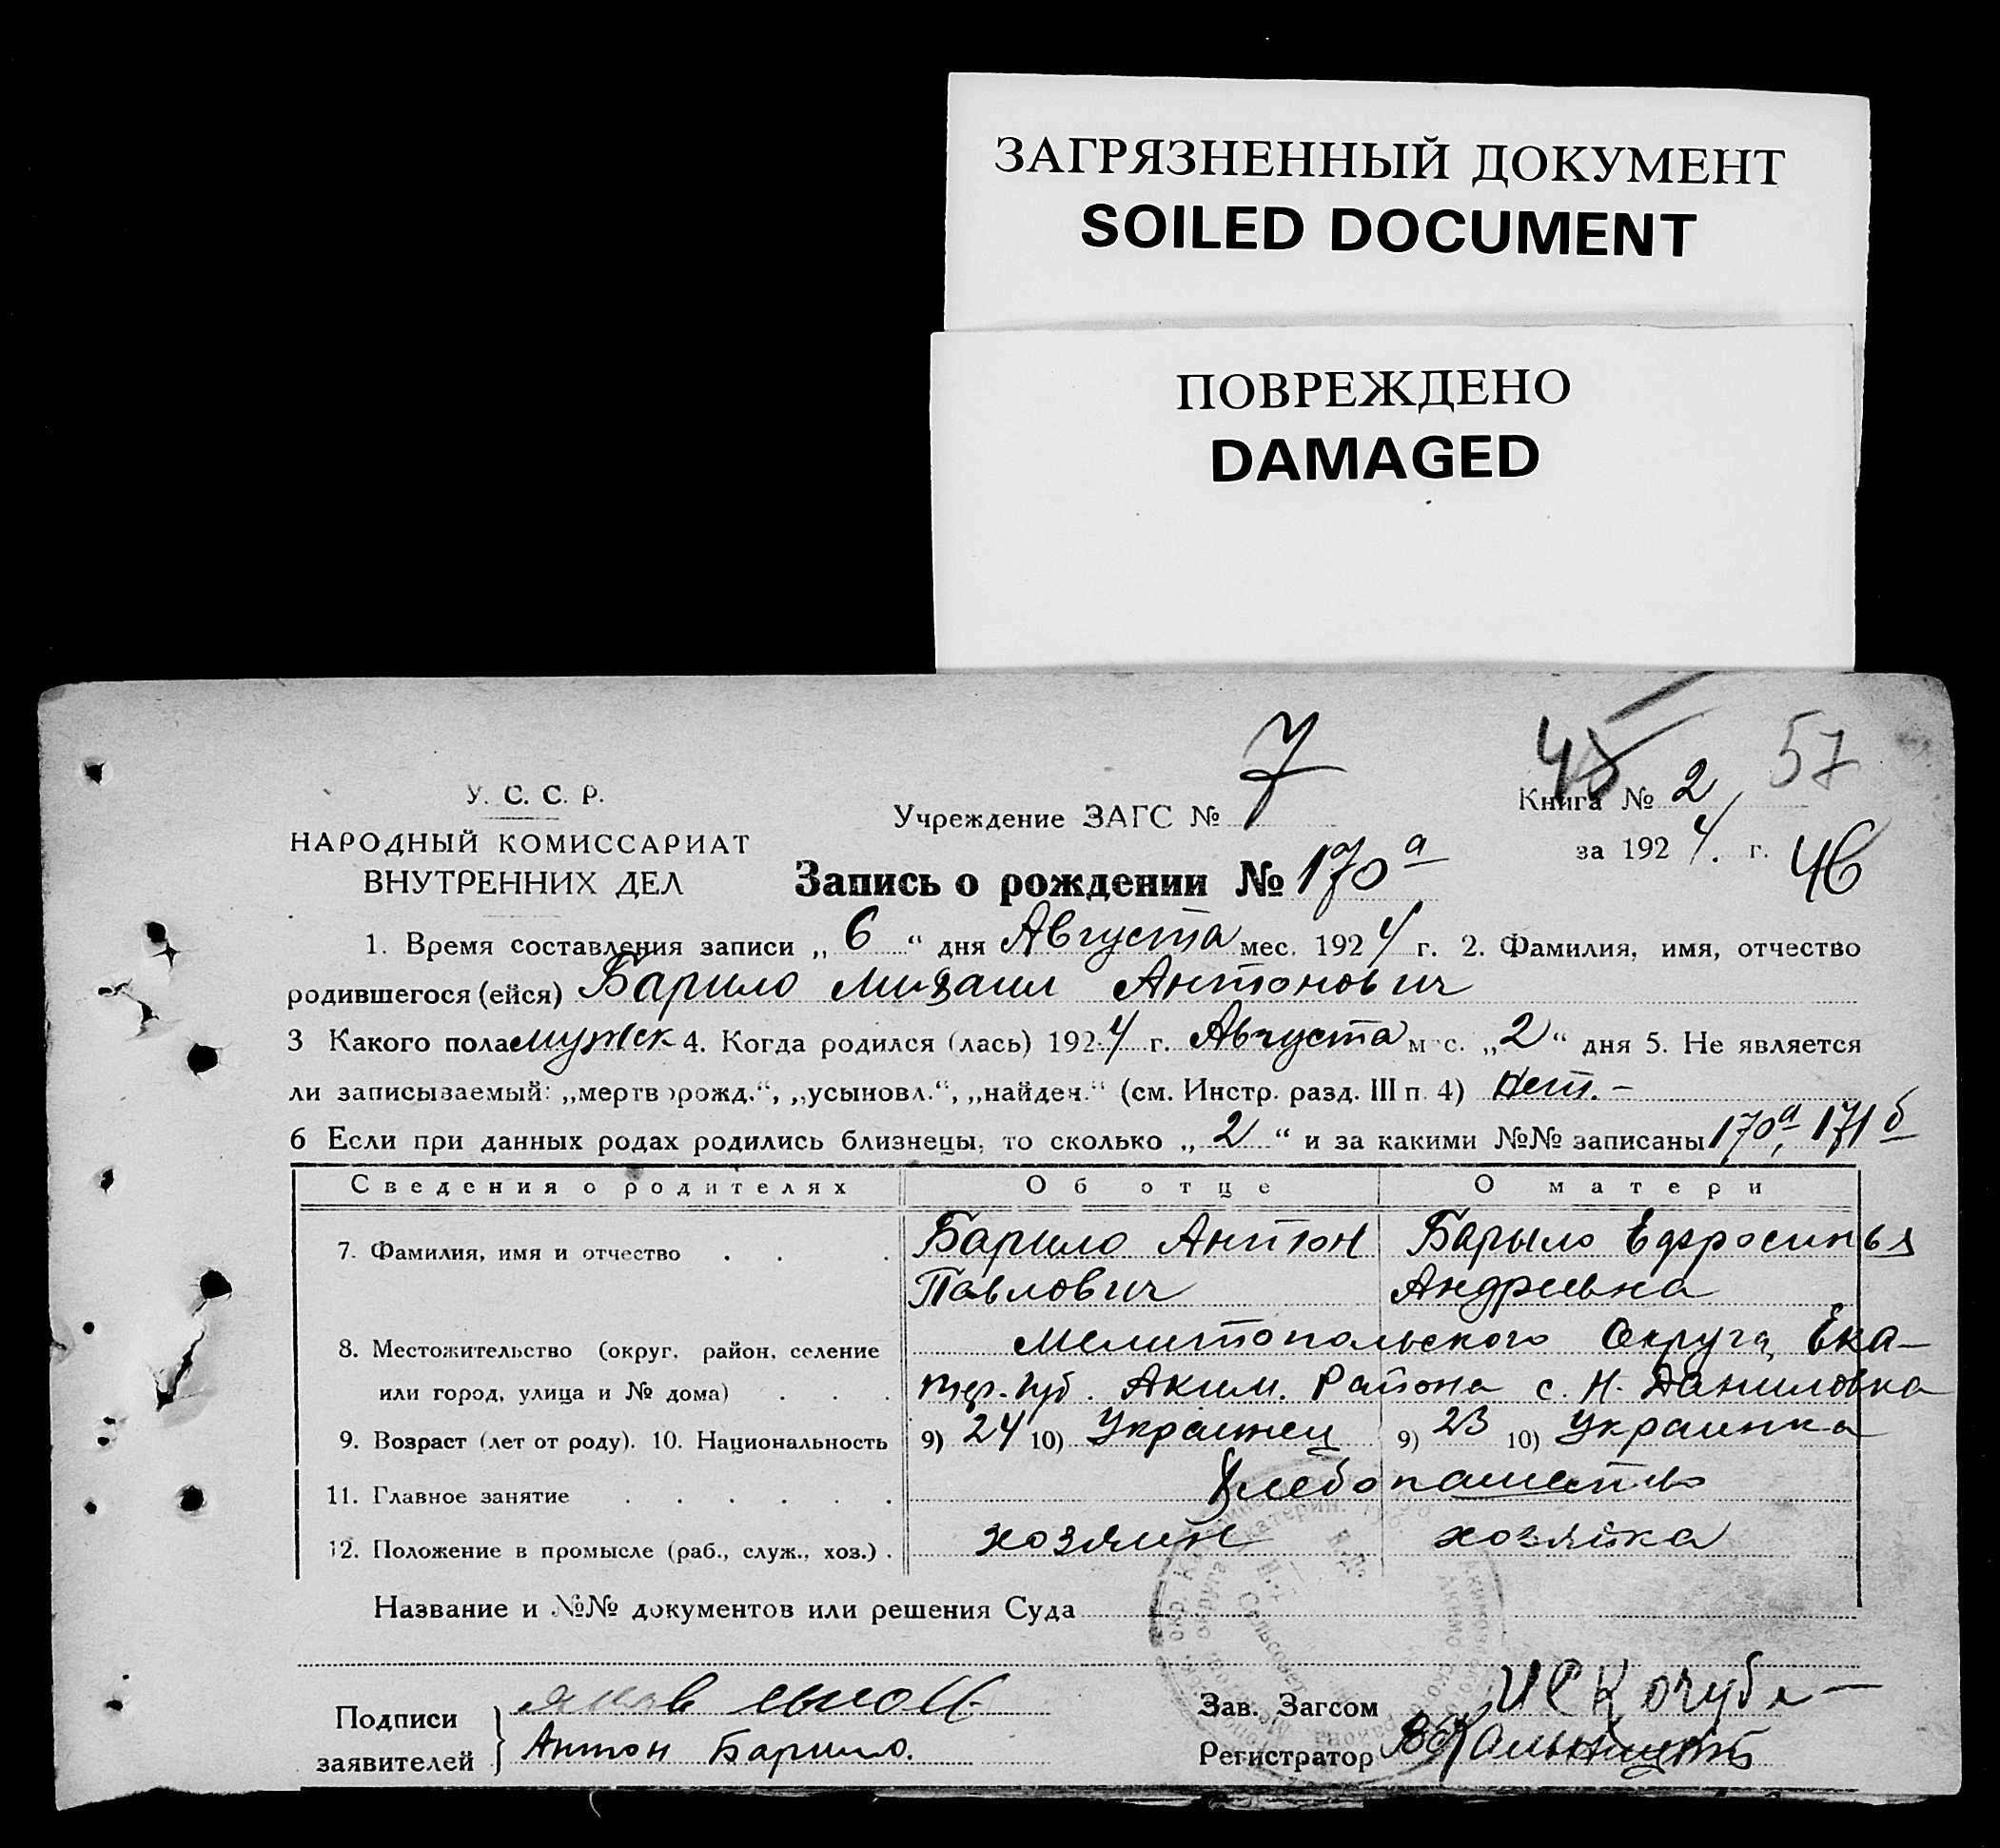 ЗАГРЯЗНЕННЫЙ ДОКУМЕНТ
SOILED DOCUMENT
ПОВРЕЖДЕНО
DAMAGED
45 57
У. С. С. Р.
НАРОДНЫЙ КОМИССАРИАТ
ВНУТРЕННИХ ДЕЛ
Учреждение ЗАГС № 7
Книга № 2
за 1924 г. 46
Запись о рождении № 170а
1. Время составления записи „ 6 “ дня Августа мес. 1924 г. 2. Фамилия, имя, отчество
родившегося (ейся) Барило Михаил Антонович
3 Какого пола мужск 4. Когда родился (лась) 1924 г. Августа м с. „ 2 “ дня 5. Не является
ли записываемый: „мертворожд.“, „усыновл.“, „найден.“ (см. Инстр. разд. III п. 4) нет. -
6 Если при данных родах родились близнецы, то сколько „ 2 “ и за какими №№ записаны 170а, 171б
Сведения о родителях Об отце О матери
7. Фамилия, имя и отчество . . . Барило Антон Барыло Ефросинья
Павлович Андреевна
8. Местожительство (округ, район, селение Мелитопольского Округа, Ека-
или город, улица и № дома) . . . тер. губ. Аким. Района с. Н. Даниловка
9. Возраст (лет от роду). 10. Национальность 9) 24 10) Украинец 9) 23 10) Украинка
11. Главное занятие . . . . . . Хлебопашество
12. Положение в промысле (раб., служ., хоз.) . хозяин хозяйка
Название и №№ документов или решения Суда
Подписи
заявителей
Антон Барило.
Зав. Загсом
Регистратор